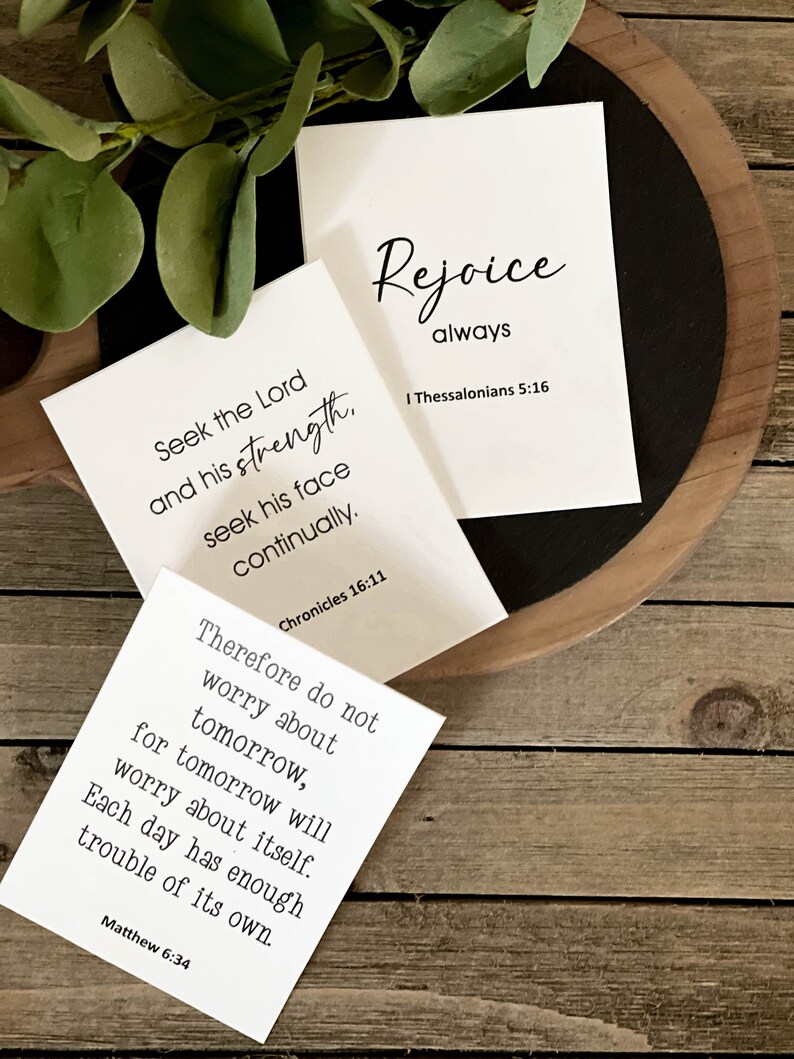 Rejoice
always
I Thessalonians 5:16
Seek the Lord
and his strength,
seek his face
continually.
Chronicles 16:11
Therefore do not
worry about
tomorrow,
for tomorrow will
worry about itself.
Each day has enough
trouble of its own.
Matthew 6:34